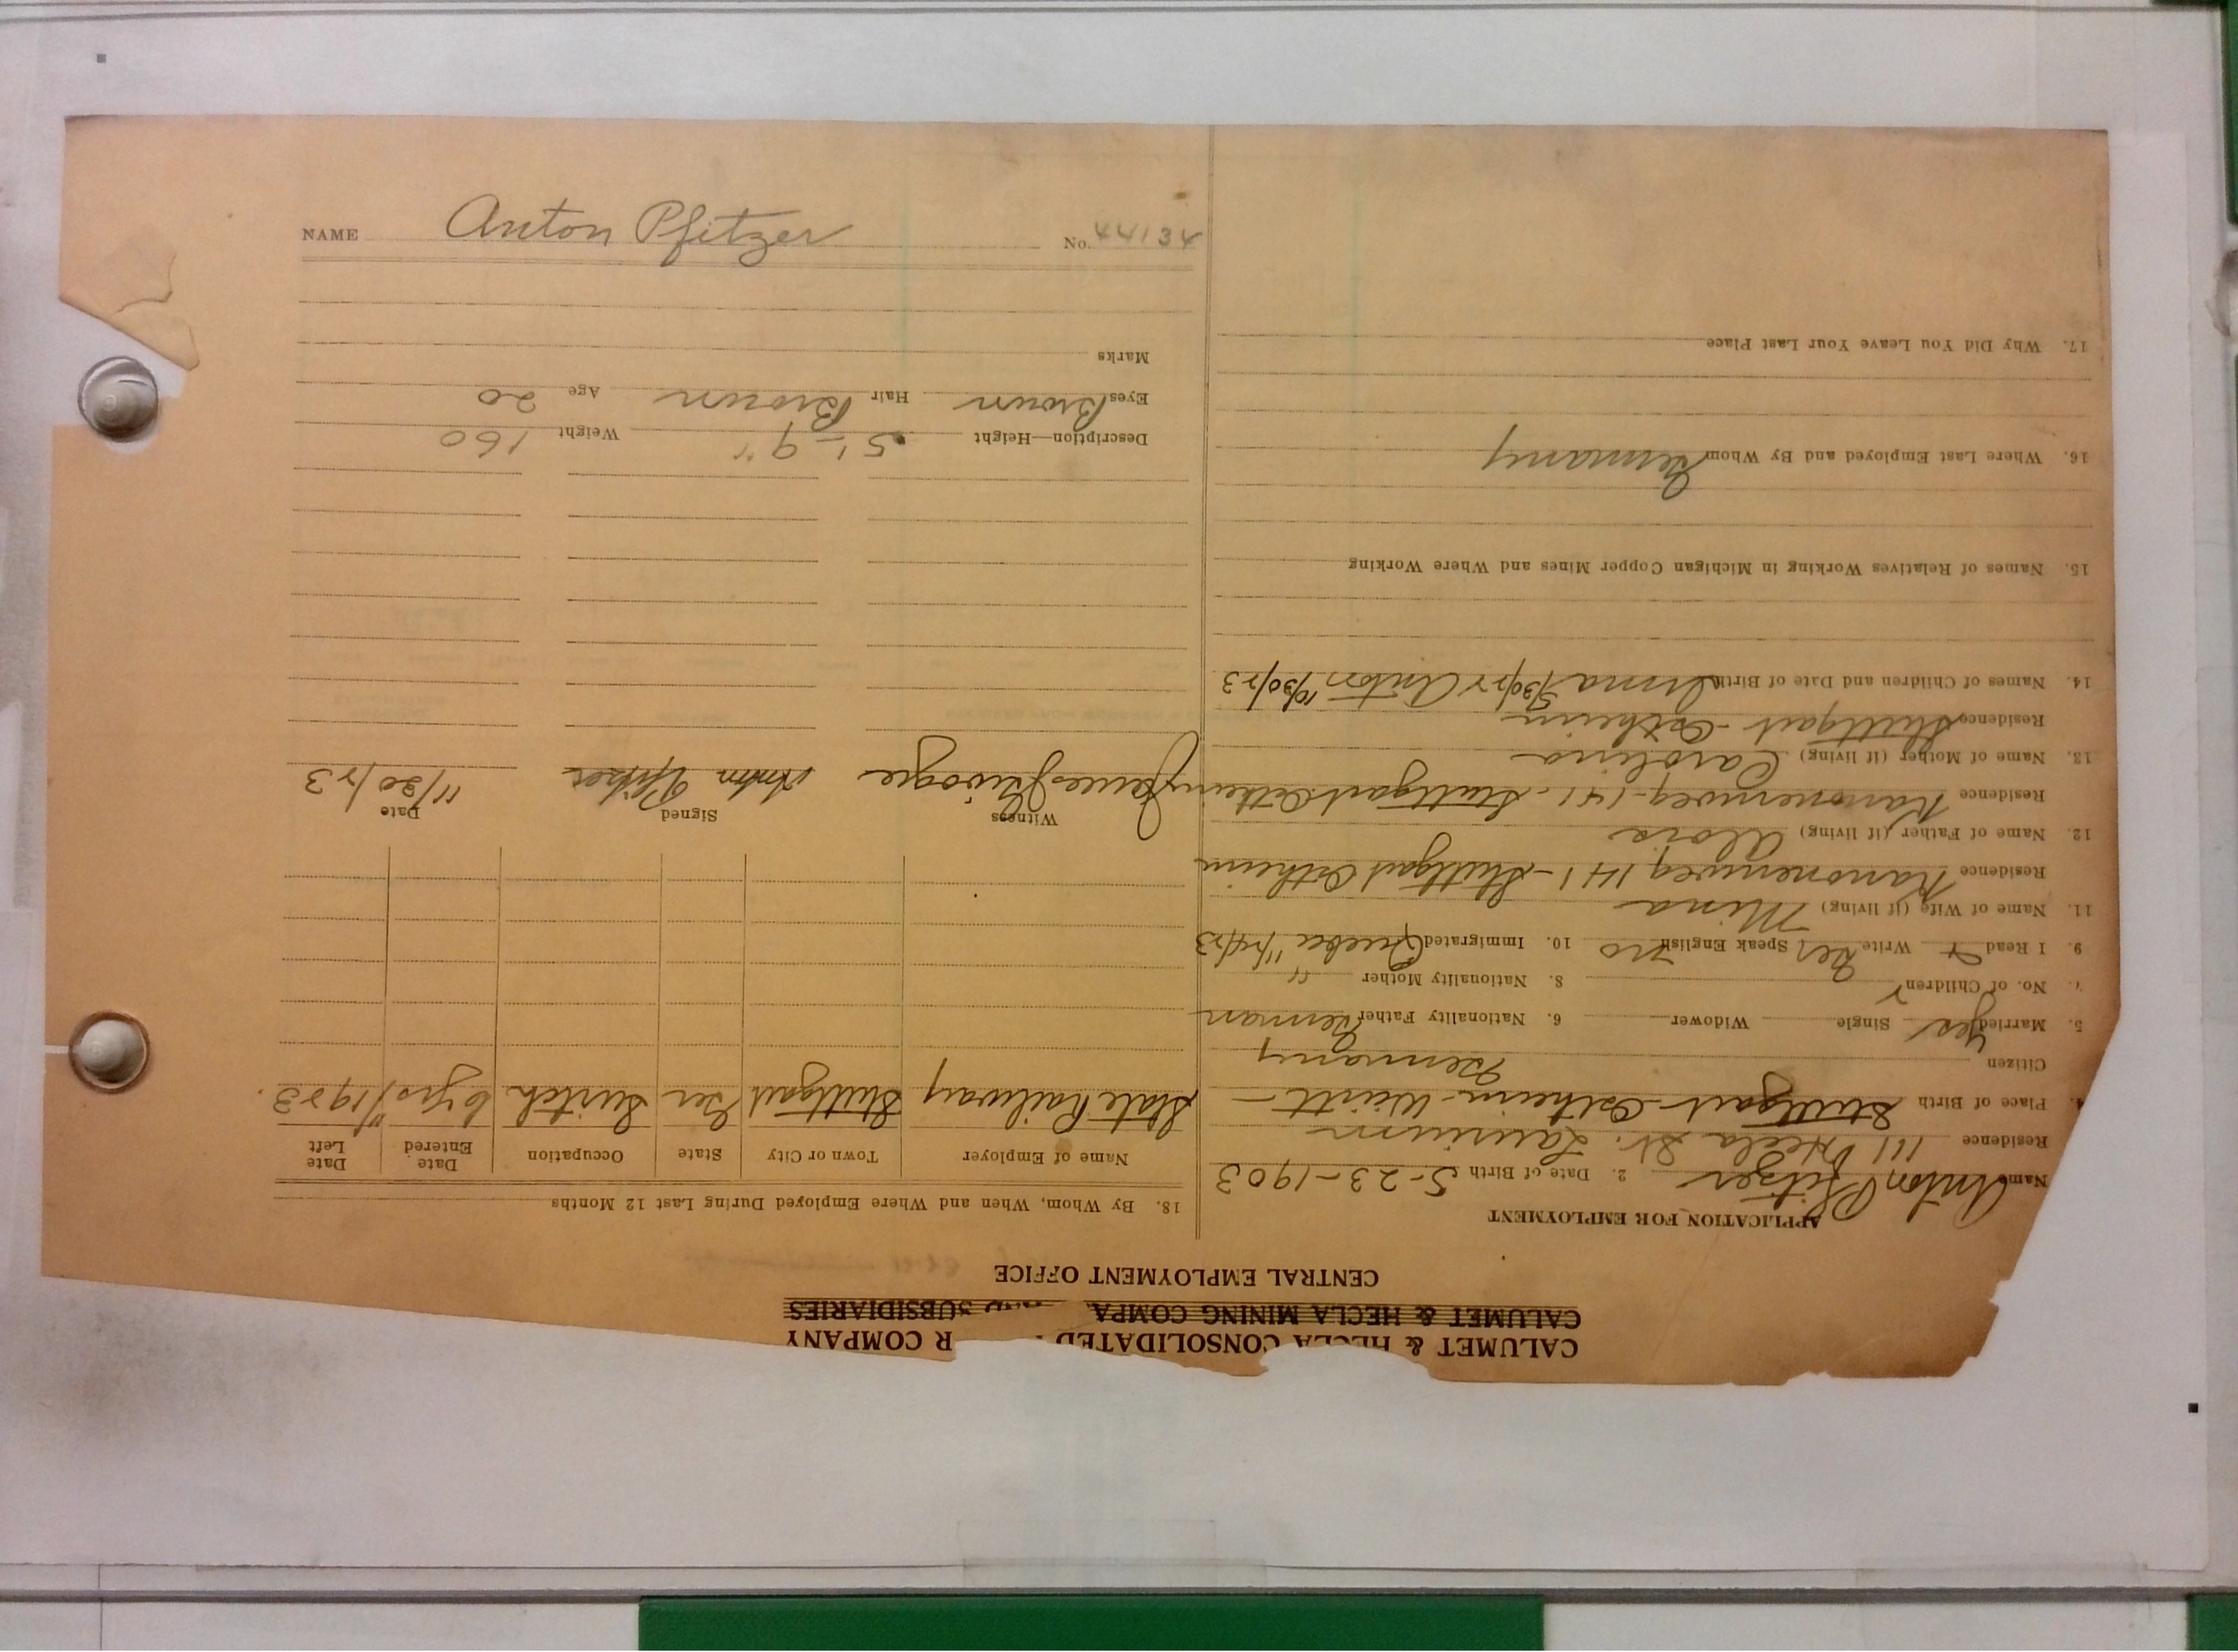 CALUMET & HECLA CONSOLIDATED R COMPANY
CALUMET & HECLA MINING COMPA SUBSIDIARIES
CENTRAL EMPLOYMENT OFFICE
APPLICATION FOR EMPLOYMENT
Name Anton Pfitzer 2. Date of Birth 5-23-1903
Residence 111 Hecla St. Laurium
Place of Birth Stuttgart-Ostheim-Württ-
Citizen Germany
5. Married Yes Single Widower 6. Nationality Father German
7. No. of Children 2 8. Nationality Mother "
9. I Read & Write Ger Speak English no 10. Immigrated 11/24/23
11. Name of Wife (if living) Mina
Residence Kanonenweg 141-Stuttgart Ostheim
12. Name of Father (if living) Alois
Residence Kanonenweg-141-Stuttgart Ostheim
13. Name of Mother (if living) Carolina
Residence Stuttgart-Ostheim
14. Names of Children and Date of Birth Anton 10/30/23
15. Names of Relatives Working in Michigan Copper Mines and Where Working
16. Where Last Employed and By Whom Germany
17. Why Did You Leave Your Last Place
18. By Whom, When and Where Employed During Last 12 Months
Name of Employer Town or City State Occupation Date Entered Date Left
State Railway Stuttgart Ger Switch 6 yrs 11/1923.
Witness Signed Date
James Anton Pfitzer 11/30/23
Description—Height 5'-9" Weight 160
Eyes Brown Hair Brown Age 20
Marks
NAME Anton Pfitzer No. 44134